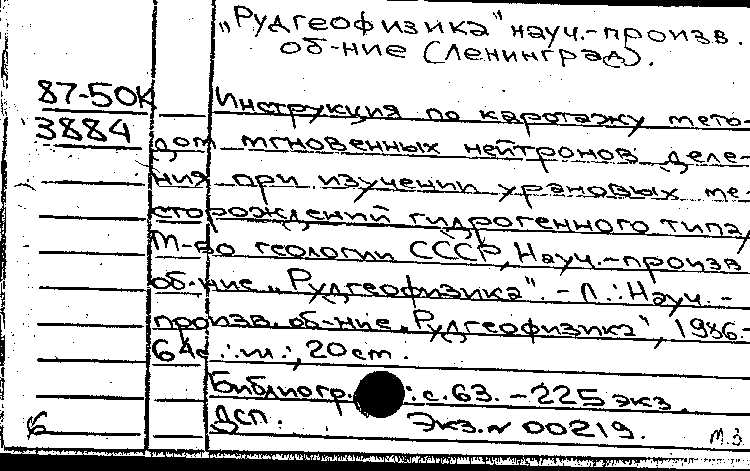 „Рудгеофизика" науч.-произв.
об-ние (Ленинград).
87-50К Инструкция по каротажу мето-
3884 дом мгновенных нейтронов деле-
ния при изучении урановых ме-
сторождений гидрогенного типа/
М-во геологии СССР, Науч.-произв
об-ние „Рудгеофизика". – Л.: Науч.-
произв. об-ние „Рудгеофизика", 1986.-
64с.:ил.; 20см.
Библиогр.: с.63. – 225 экз.
ДСП. Экз.№ 00219.
б м.з